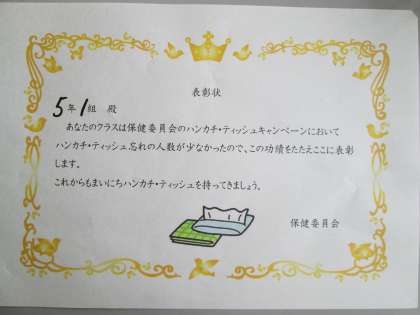 表彰状
5年1組 殿
あなたのクラスは保健委員会のハンカチ・ティッシュキャンペーンにおいて
ハンカチ・ティッシュ忘れの人数が少なかったので、この功績をたたえここに表彰
します。
これからもまいにちハンカチ・ティッシュを持ってきましょう。
保健委員会